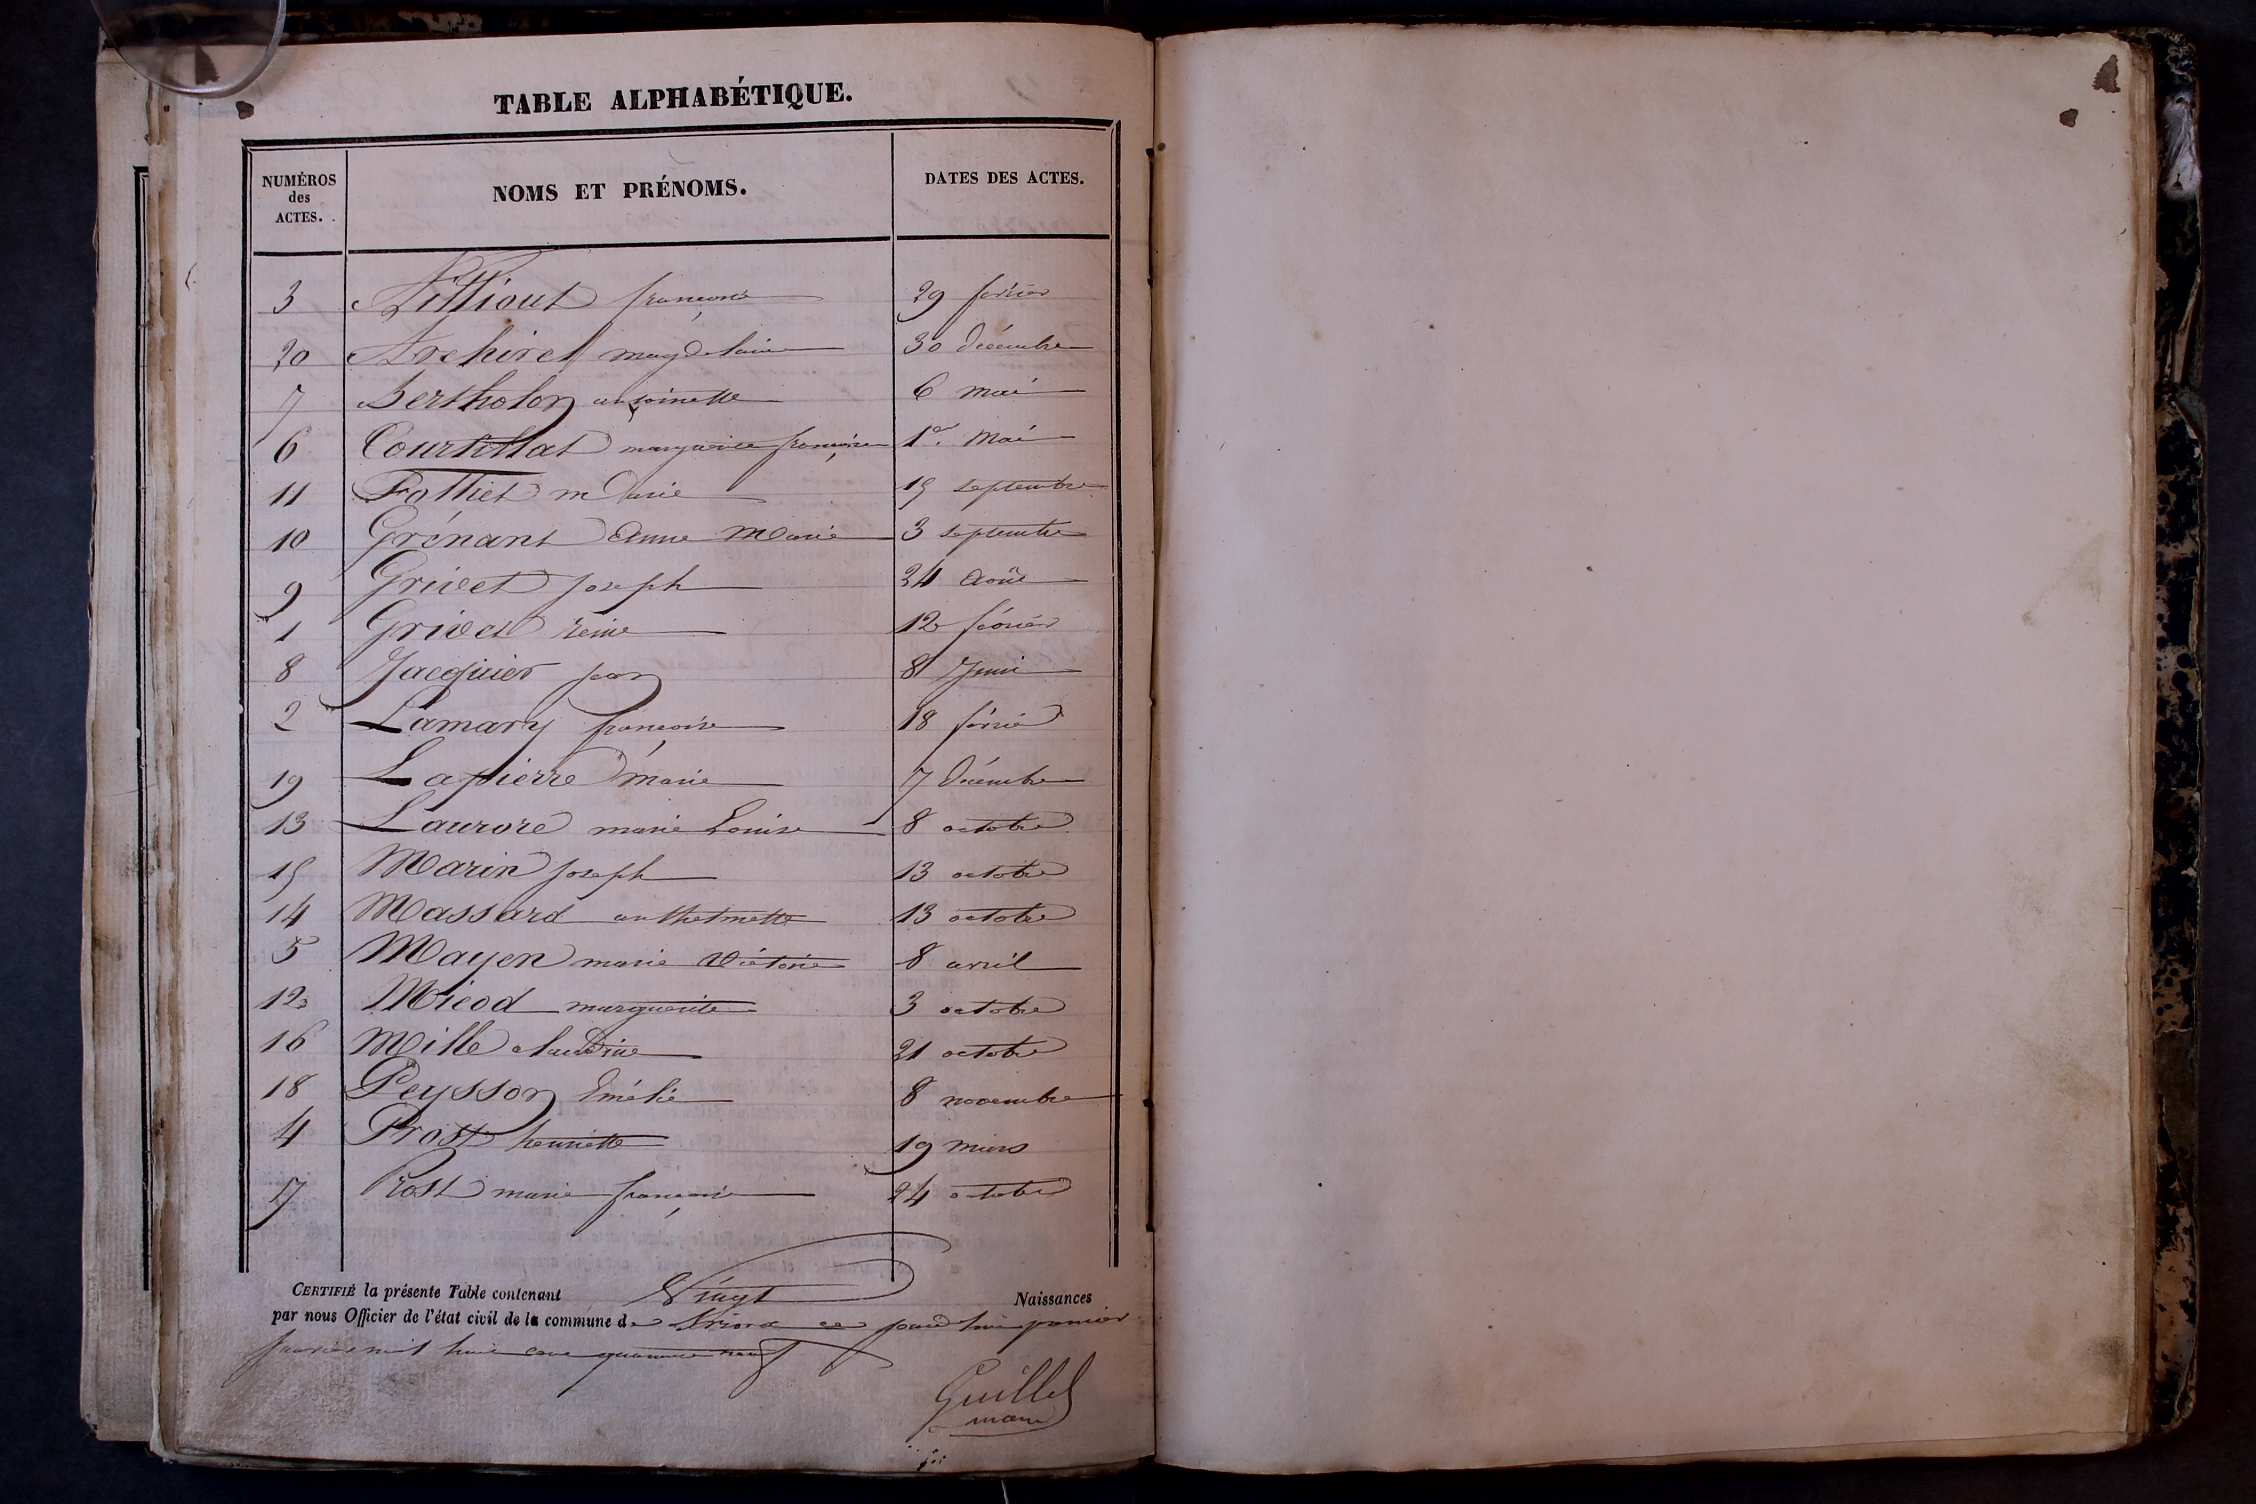 TABLE ALPHABÉTIQUE.
NUMÉROS des ACTES. NOMS ET PRÉNOMS. DATES DES ACTES.
3 françoise 29 février
20 magdelaine 30 décembre
7 Bertholon antoinette 6 mai
6 Courtillat marguerite françoise 1er mai
11 marie 15 septembre
10 Grénant Anne Marie 3 septembre
9 Grivet joseph 24 Août
1 Grivet reine 12 février
8 Jacquier jean 8 Juin
2 Lamary françoise 18 février
19 Lapierre marie 7 Décembre
13 Laurore marie Louise 8 octobre
15 Marin joseph 13 octobre
14 Massard anthelmette 13 octobre
5 Mayen marie Victoire 8 avril
12 Micod marguerite 3 octobre
16 Mille claudine 21 octobre
18 Peysson Emélie 8 novembre
4 Prost henriette 19 mars
17 Prost marie françoise 24 octobre
CERTIFIÉ la présente Table contenant Vingt Naissances
par nous Officier de l'état civil de la commune de Briord ce jourd'hui premier
janvier mil huit cent quarante neuf
Guillet
maire